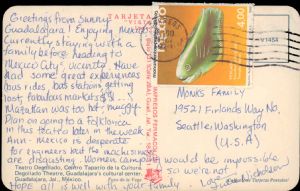 Greetings from Sunny
Guadalajara! Enjoying Mexico.
Currently staying with a
family before heading to
Mexico City vicinity. Have
had some great experiences
bus rides, bus stations getting
lost, fabulous markets
Mazatlan was too hot + muggy.
Plan on going to a Folklorico
in this teatro later in the week
Ann - Mexico is desperate
for engineers but the machismos
are disgusting. Women
would be impossible
so we're not
Hope all is well with your family
TARJETA
4.00
V1454
MONKS FAMILY
19521 Firlands Way No.
Seattle, Washington
(U.S.A)
Teatro Degollado, Centro Tapatío de la Cultura
Degollado Theatre, Guadalajara's cultural center.
Guadalajara, Jal., México